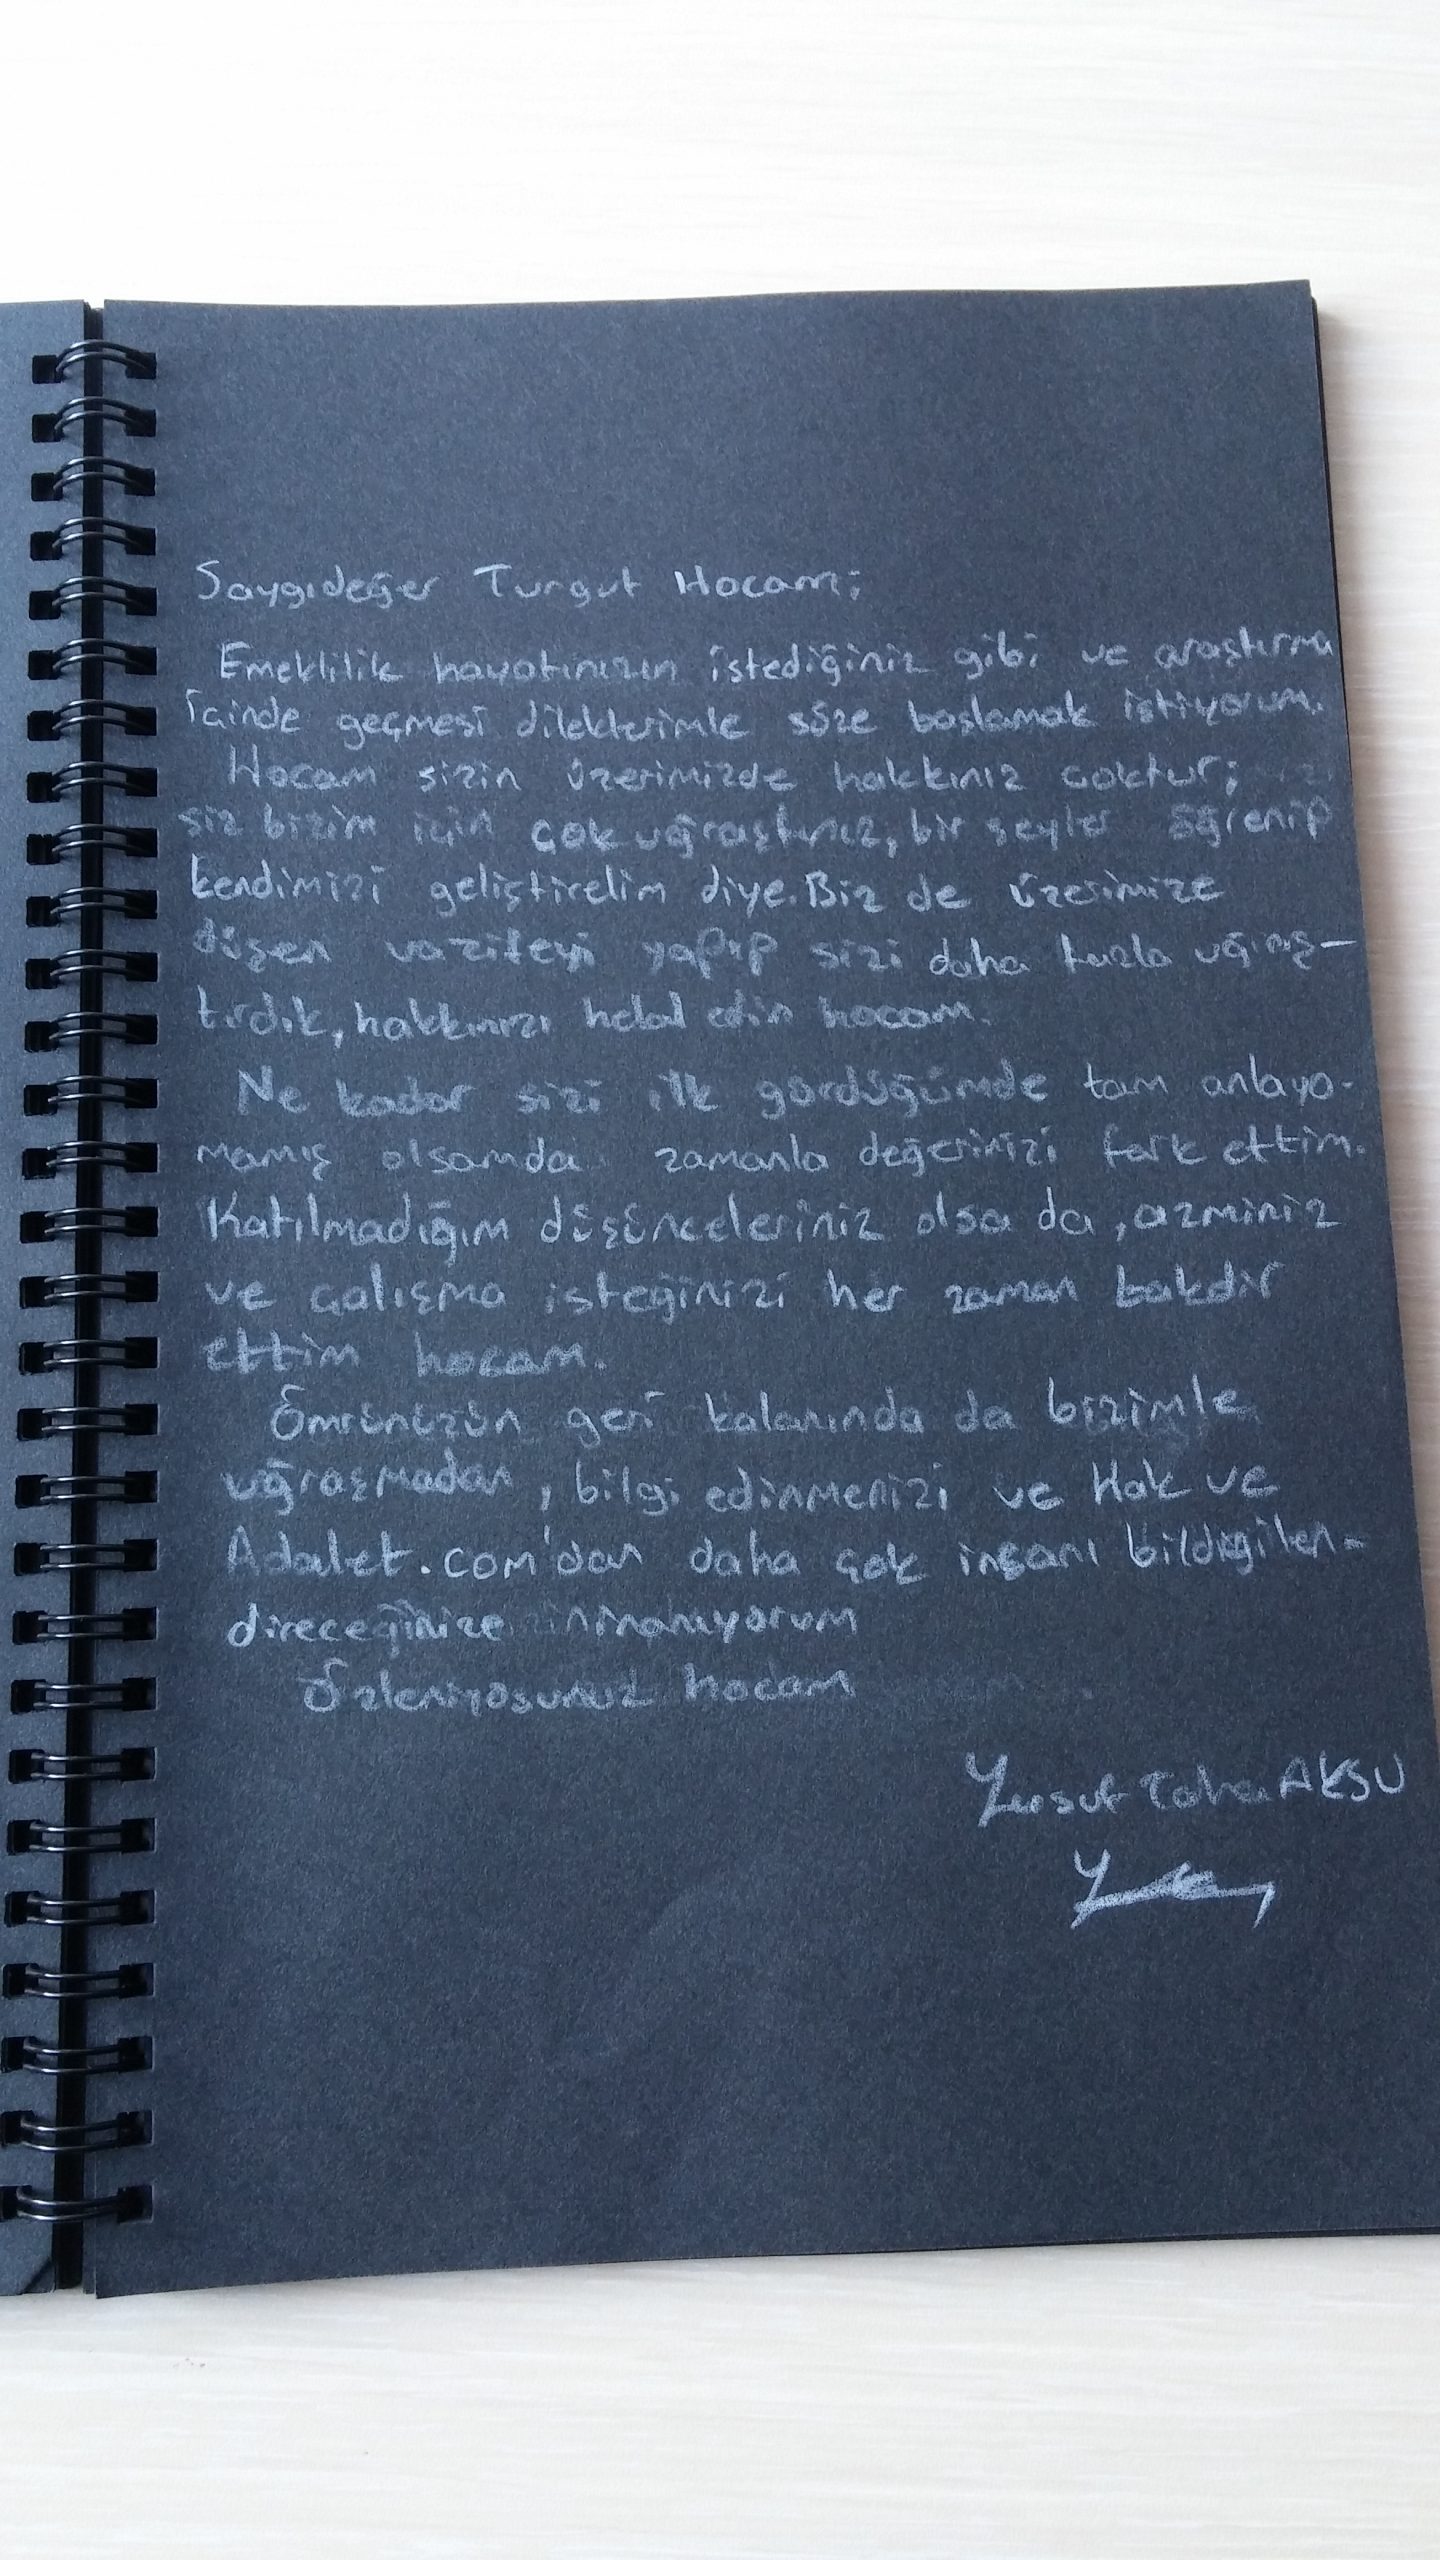 Saygıdeğer Turgut Hocam;
Emeklilik hayatınızın istediğiniz gibi ve araştırma
İçinde geçmesi dileklerimle söze başlamak istiyorum.
Hocam sizin üzerimizde hakkınız çoktur;
siz bizim için çok uğraştınız, bir şeyler öğrenip
kendimizi geliştirelim diye. Biz de üzerimize
düşen vazifeyi yapıp sizi daha fazla uğraş-
tırdık, hakkınızı helal edin hocam.
Ne kadar sizi ilk gördüğümde tam anlaya-
mamış olsamda zamanla değerinizi fark ettim.
Katılmadığım düşünceleriniz olsa da, azminiz
ve çalışma isteğinizi her zaman takdir
ettim hocam.
Ömrünüzün geri kalanında da bizimle
uğraşmadan, bilgi edinmenizi ve Hak ve
Adalet.com'dan daha çok insanı
direceğinize
hocam
Yusuf Taha AKSU